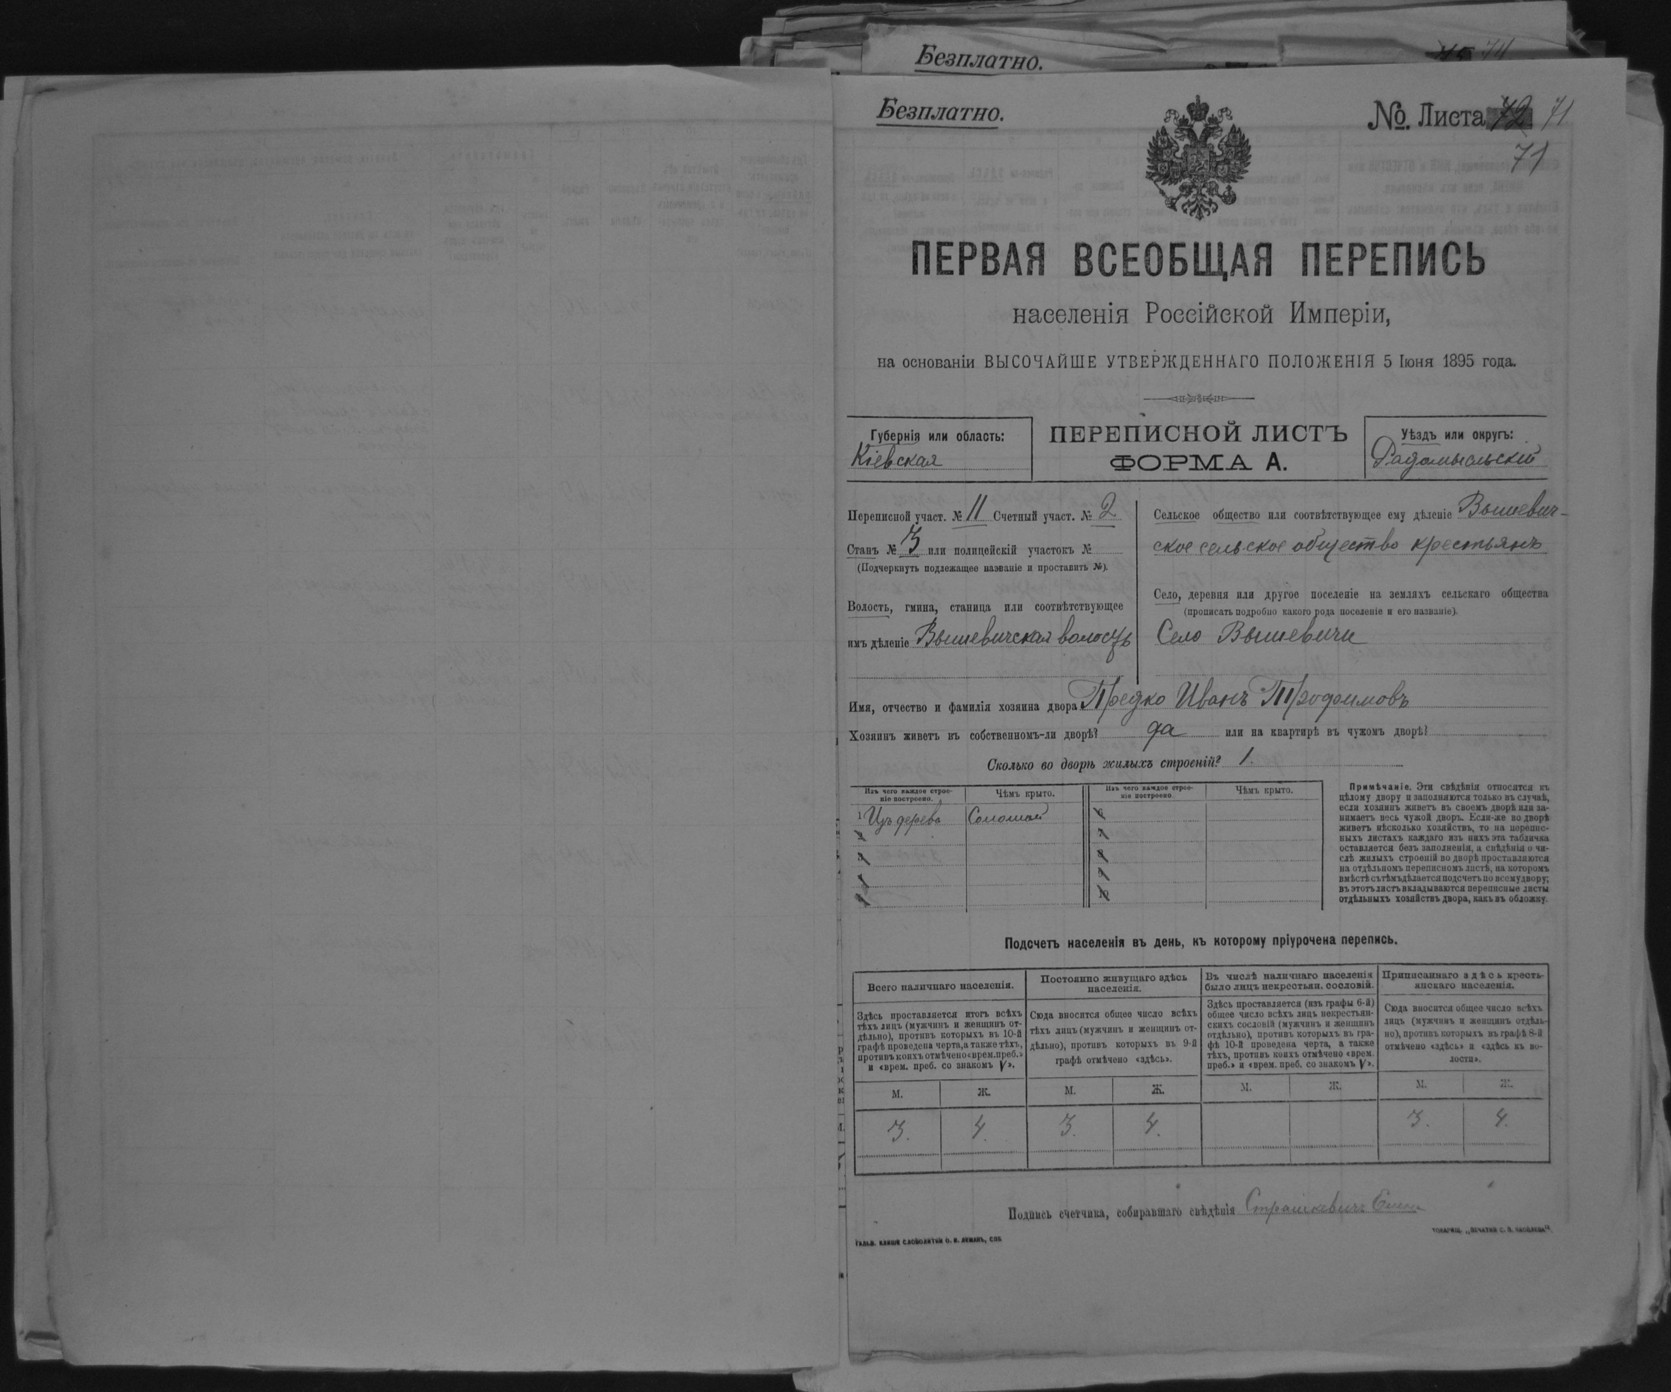 Безплатно.
Безплатно.
№ Листа 72 71
71
ПЕРВАЯ ВСЕОБЩАЯ ПЕРЕПИСЬ
населенія Россійской Имперіи,
на основаніи ВЫСОЧАЙШЕ УТВЕРЖДЕННАГО ПОЛОЖЕНІЯ 5 Іюня 1895 года.
Губернія или область:
Кіевская
ПЕРЕПИСНОЙ ЛИСТЪ
ФОРМА А.
Уѣздъ или округъ:
Радомысльскій
Переписной участ. № 11 Счетный участ. № 2
Станъ № 3 или полицейскій участокъ №
(Подчеркнуть подлежащее названіе и проставить №).
Волость, гмина, станица или соотвѣтствующее
имъ дѣленіе Вышевичская волость
Сельское общество или соотвѣтствующее ему дѣленіе Вышевич-
ское сельское общество крестьянъ
Село, деревня или другое поселеніе на земляхъ сельскаго общества
(прописать подробно какого рода поселеніе и его названіе).
Село Вышевичи
Имя, отчество и фамилія хозяина двора Иванъ Трофимовъ
Хозяинъ живетъ въ собственномъ-ли дворѣ? да или на квартирѣ въ чужомъ дворѣ?
Сколько во дворѣ жилыхъ строеній? 1.
Изъ чего каждое строе-
ніе построено.
Чѣмъ крыто.
Изъ чего каждое строе-
ніе построено.
Чѣмъ крыто.
1 Изъ дерева Соломой
Примѣчаніе. Эти свѣдѣнія относятся къ
цѣлому двору и заполняются только въ случаѣ,
если хозяинъ живетъ въ своемъ дворѣ или за-
нимаетъ весь чужой дворъ. Если-же во дворѣ
живетъ нѣсколько хозяйствъ, то на перепис-
ныхъ листахъ каждаго изъ нихъ эта табличка
оставляется безъ заполненія, а свѣдѣнія о чи-
слѣ жилыхъ строеній во дворѣ проставляются
на отдѣльномъ переписномъ листѣ, на которомъ
вмѣстѣ съ тѣмъ дѣлается подсчетъ по всему двору;
въ этотъ листъ вкладываются переписные листы
отдѣльныхъ хозяйствъ двора, какъ въ обложку.
Подсчетъ населенія въ день, къ которому пріурочена перепись.
Всего наличнаго населенія.
Здѣсь проставляется итогъ всѣхъ
тѣхъ лицъ (мужчинъ и женщинъ от-
дѣльно), противъ которыхъ въ 10-й
графѣ проведена черта, а также тѣхъ,
противъ коихъ отмѣчено «врем. преб.»
и «врем. преб. со знакомъ V».
М. Ж.
3. 4.
Постоянно живущаго здѣсь
населенія.
Сюда вносится общее число всѣхъ
тѣхъ лицъ (мужчинъ и женщинъ от-
дѣльно), противъ которыхъ въ 9-й
графѣ отмѣчено «здѣсь».
М. Ж.
3. 4.
Въ числѣ наличнаго населенія
было лицъ некрестьян. сословій.
Здѣсь проставляется (изъ графы 6-й)
общее число всѣхъ лицъ некрестьян-
скихъ сословій (мужчинъ и женщинъ
отдѣльно), противъ которыхъ въ гра-
фѣ 10-й проведена черта, а также
тѣхъ, противъ коихъ отмѣчено «врем.
преб.» и «врем. преб. со знакомъ V».
М. Ж.
Приписаннаго здѣсь кресть-
янскаго населенія.
Сюда вносится общее число всѣхъ
лицъ (мужчинъ и женщинъ отдѣль-
но), противъ которыхъ въ графѣ 8-й
отмѣчено «здѣсь» и «здѣсь въ во-
лости».
М. Ж.
3. 4.
Подпись счетчика, собиравшаго свѣдѣнія Страшкевичъ